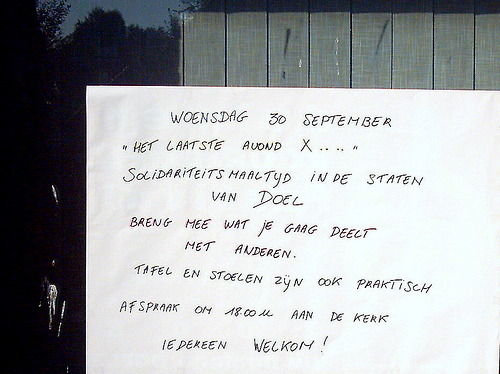 WOENSDAG 30 SEPTEMBER
"HET LAATSTE AVOND X .. .. "
SOLIDARITEITSMAALTYD IN DE STATEN
VAN DOEL
BRENG MEE WAT JE GAAG DEELT
MET ANDEREN.
TAFEL EN STOELEN ZIJN OOK PRAKTISCH
AFSPRAAK OM 18.00 u AAN DE KERK
IEDEREEN WELKOM!